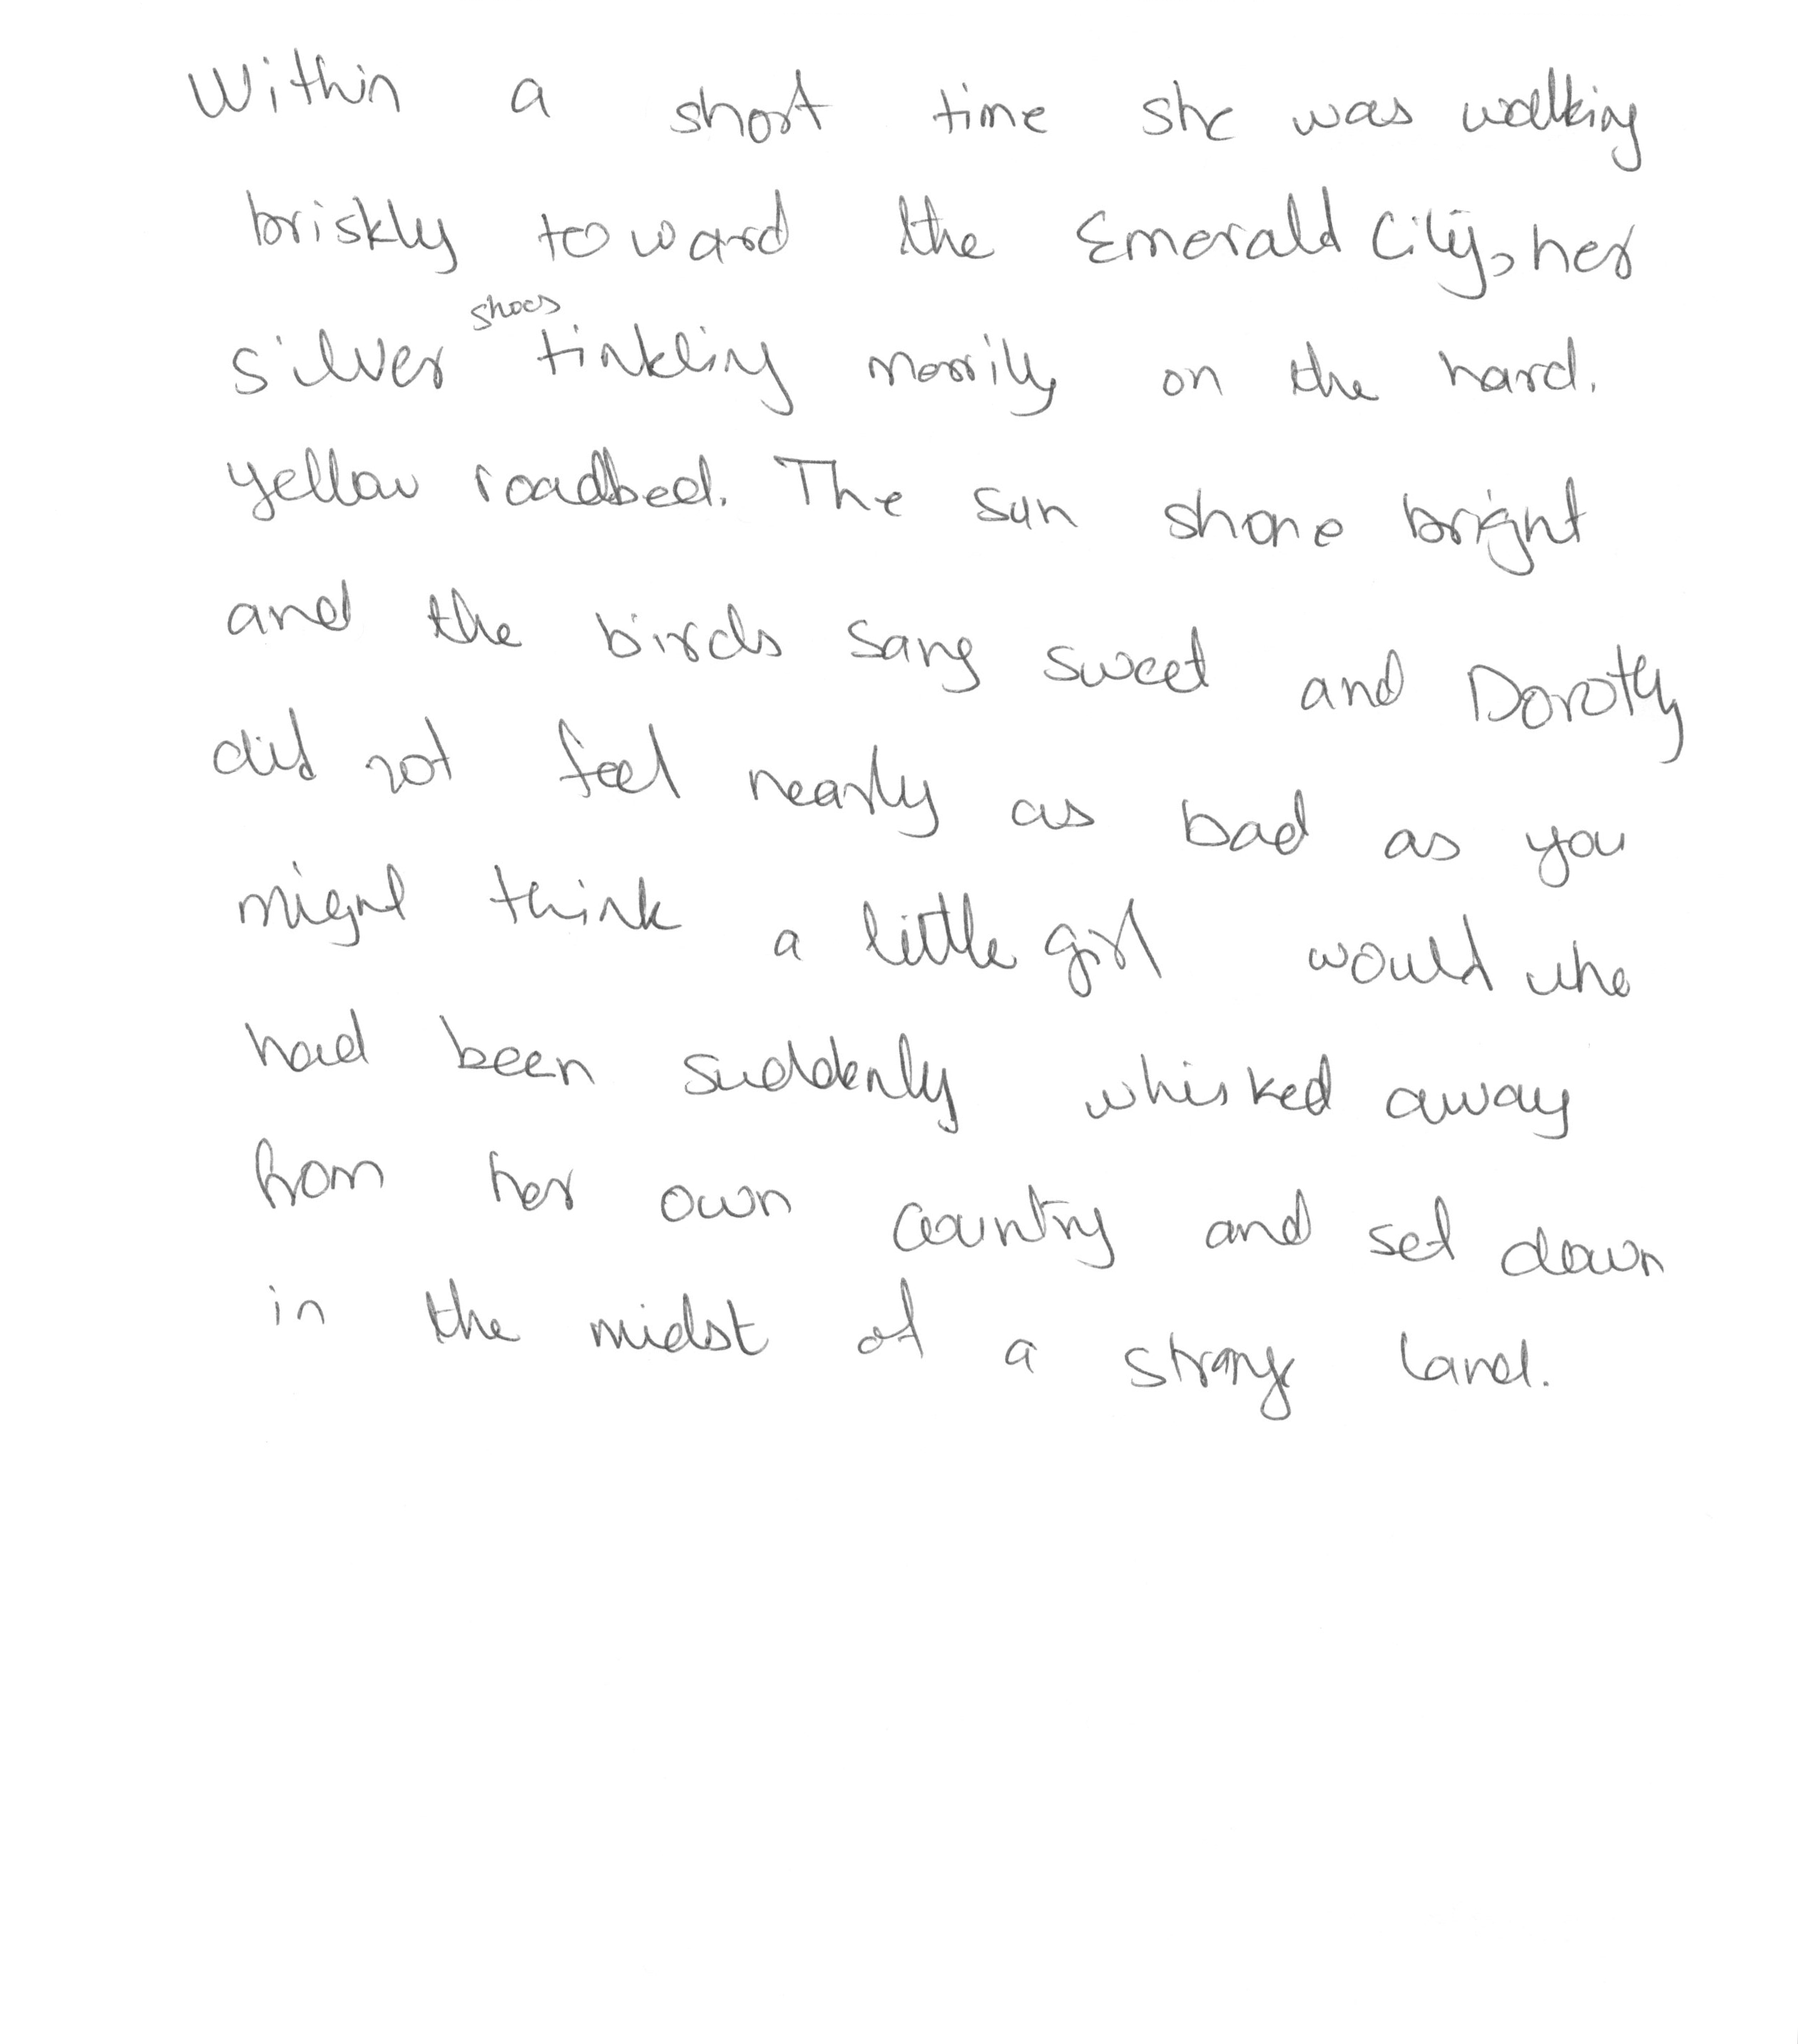 Within a short time she was walking
briskly toward the Emerald City, her
silver shoes tinkling merrily on the hard.
yellow roadbed. The sun shone bright
and the birds sang sweet and Dorothy
did not feel nearly as bad as you
might think a little girl would who
had been suddenly whisked away
from her own country and set down
in the midst of a strange land.